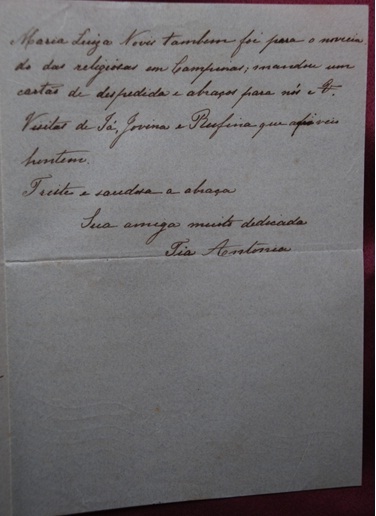 Maria Luiza Novis tambem foi para o novicia
do das religiosas em Campinas; mandou um
cartas de despedida e abraços para nós e V.
Visitas de Iá, Jovina e Rufina que veio
hontem.
Triste e saudosa a abraça
Sua amiga muito dedicada
Tia Antonia